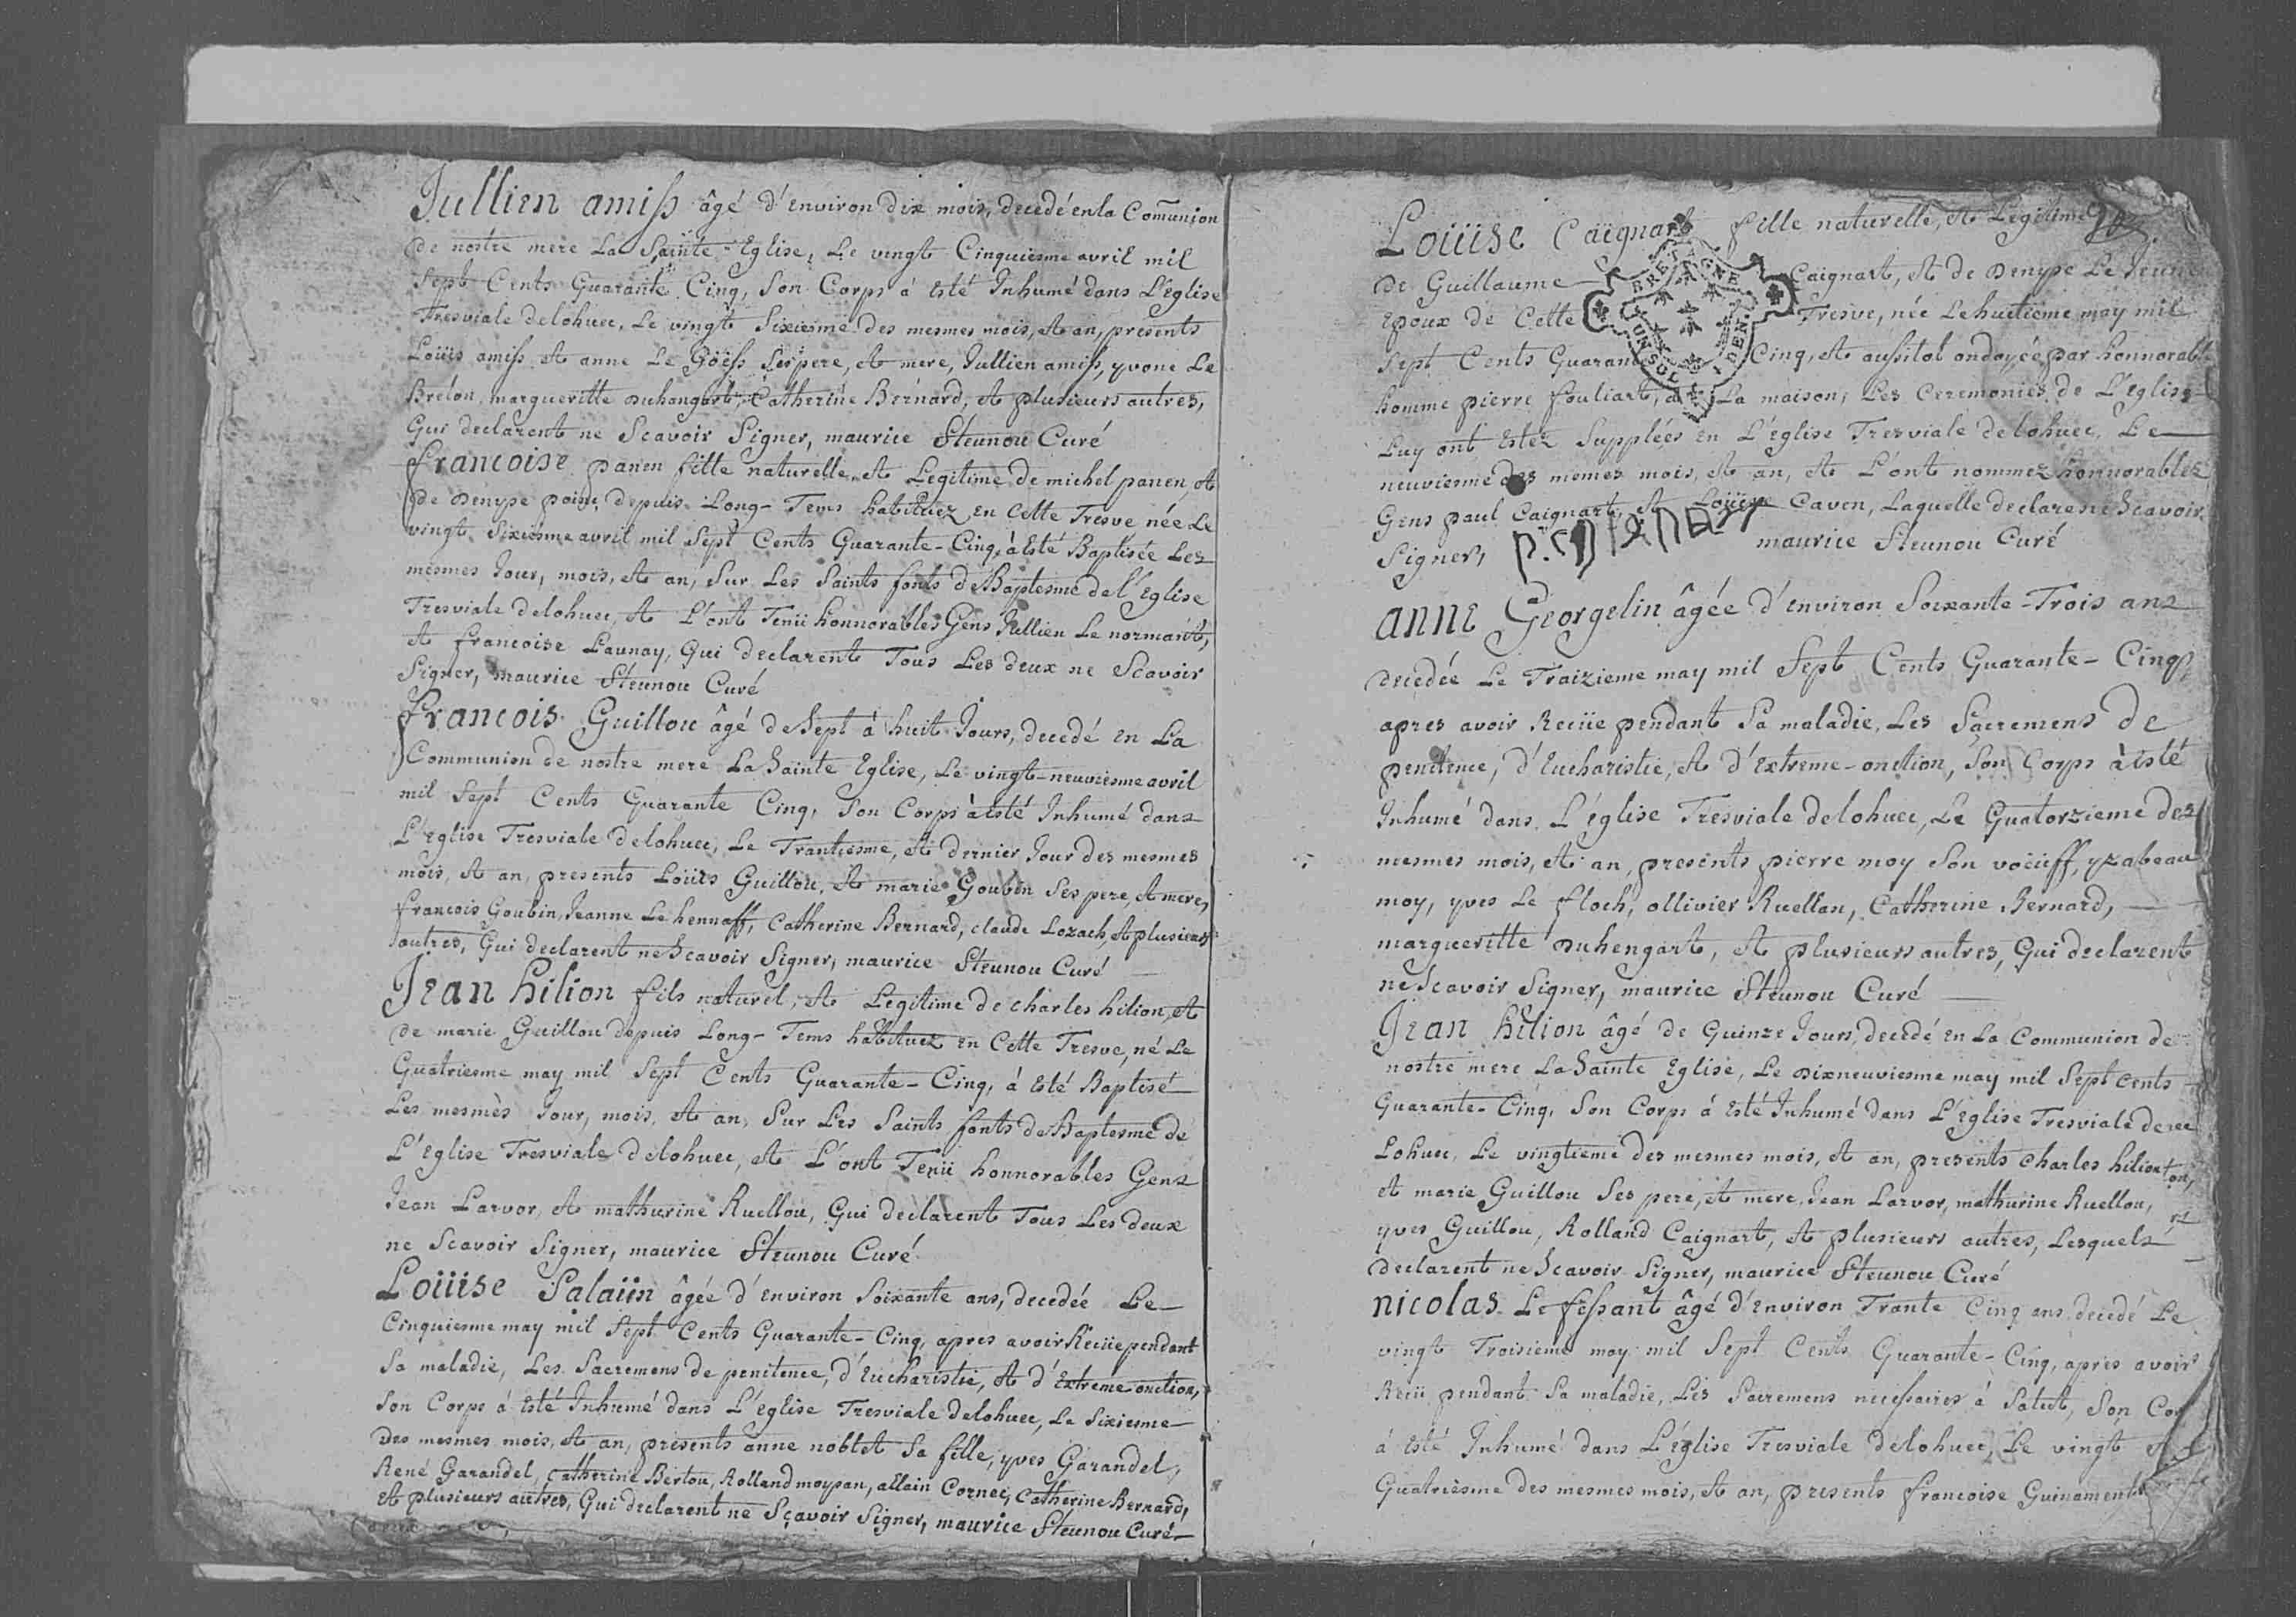 Jullien amiss âgé d'Environ dix mois, decedé en la Comunion
de nostre mere La Sainte Eglise, Le vingt Cinquiesme avril mil
Sept Cents Quarante Cinq, Son Corps à Esté Inhumé dans L'Eglise
Tresviale delohuec, Le vingt Sixiesme des mesmes mois, et an, presents
Loüis amiss et anne Le Goëss Ses pere, et mere, Jullien amiss, yvone Le
Breton, margueritte duhangart, Catherine Bernard, et plusieurs autres,
Qui declarent ne Scavoir Signer, maurice Steunou Curé
francoise panen fille naturelle, et Legitime de michel panen, et
de Denyse poine, depuis Long-Tems habituez en Cette Tresve née Le
vingt Sixiesme avril mil Sept Cents Quarante-Cinq, à Esté Baptisée Les
mesmes Jour, mois, et an, Sur Les Saints fonts de Baptesme de l'Eglise
Tresviale delohuec, et L'ont Tenü honnorables Gens Jullien Le normant,
et francoise Launay, Qui declarent Tous Les deux ne Scavoir
Signer, maurice Steunou Curé
francois Guillou âgé de Sept à huit Jours, decedé en La
Communion de nostre mere La Sainte Eglise, Le vingt-neuviesme avril
mil Sept Cents Quarante Cinq, Son Corps à esté Inhumé dans
L'Eglise Tresviale delohuec, Le Trantiesme, et dernier Jour des mesmes
mois, et an, presents Loüis Guillou, et marie Goubin Ses pere, et mere,
francois Goubin, Jeanne Le hennaff, Catherine Bernard, claude Lozach, et plusieurs
autres, Qui declarent ne Scavoir Signer, maurice Steunou Curé
Jean hilion fils naturel, et Legitime de charles hilion, et
de marie Guillou depuis Long-Tems habituez en Cette Tresve, né Le
Quatriesme may mil Sept Cents Quarante-Cinq, à Esté Baptisé
Les mesmes Jour, mois, et an, Sur Les Saints fonts de Baptesme de
L'Eglise Tresviale delohuec, et L'ont Tenü honnorables Gens
Jean Larvor, et mathurine Ruellou, Qui declarent Tous Les deux
ne Scavoir Signer, maurice Steunou Curé
Loüise Salaün âgée d'Environ Soixante ans, decedée Le
Cinquiesme may mil Sept Cents Quarante-Cinq, apres avoir Reciie pendant
Sa maladie, Les Sacremens de penitence, d'Eucharistie, et d'Extreme-onction,
Son Corps à Esté Inhumé dans L'Eglise Tresviale delohuec, Le Sixiesme
des mesmes mois, et an, presents anne noblet Sa fille, yves Garandel,
René Garandel, catherine Bertou, Rolland moysan, allain Cornec, Catherine Bernard,
et plusieurs autres, Qui declarent ne Sçavoir Signer, maurice Steunou Curé
Loüise Caignart fille naturelle, et Legitime
de Guillaume Caignart, et de Denyse Le Jeune
Epoux de Cette Tresve, née Le huitieme may mil
Sept Cents Quarante Cinq, et aussitot ondoyée par honnorable
homme pierre fouliart, à La maison, Les Ceremonies de L'Eglise
Luy ont Estez Supplées en L'Eglise Tresviale delohuec, Le
neuviesme des memes mois, et an, et L'ont nommez honnorables
Gens paul Caignart, et Loüise Caven, Laquelle declare ne Scavoir
Signer, maurice Steunou Curé
anne Georgelin âgée d'environ Soixante-Trois ans
decedée Le Traizieme may mil Sept Cents Quarante-Cinq,
apres avoir Reciie pendant Sa maladie, Les Sacremens de
penitence, d'Eucharistie, et d'Extreme-onction, Son Corps à esté
Inhumé dans L'église Tresviale delohuec, Le Quatorzieme des
mesmes mois, et an, presents pierre moy Son voeüff, yzabeau
moy, yves Le floch, ollivier Ruellan, Catherine Bernard,
margueritte duhengart, et plusieurs autres, Qui declarent
ne Scavoir Signer, maurice Steunou Curé
Jean hilion âgé de Quinze Jours, decedé en La Communion de
nostre mere La Sainte Eglise, Le dixneuviesme may mil Sept cents
Quarante-Cinq, Son Corps à Esté Inhumé dans L'Eglise Tresviale de
Lohuec, Le vingtieme des mesmes mois, et an, presents charles hilion,
et marie Guillou Ses pere, et mere, Jean Larvor, mathurine Ruellou,
yves Guillou, Rolland Caignart, et plusieurs autres, Lesquels
declarent ne Scavoir Signer, maurice Steunou Curé
nicolas Le fessant âgé d'Environ Trante Cinq ans decedé Le
vingt Troisieme may mil Sept Cents Quarante-Cinq, apres avoir
Reciu pendant Sa maladie, Les Sacremens necessaires à Salut, Son Cor
à Esté Inhumé dans L'église Tresviale delohuec, Le vingt et
Quatriesme des mesmes mois, et an, presents francoise Guinament